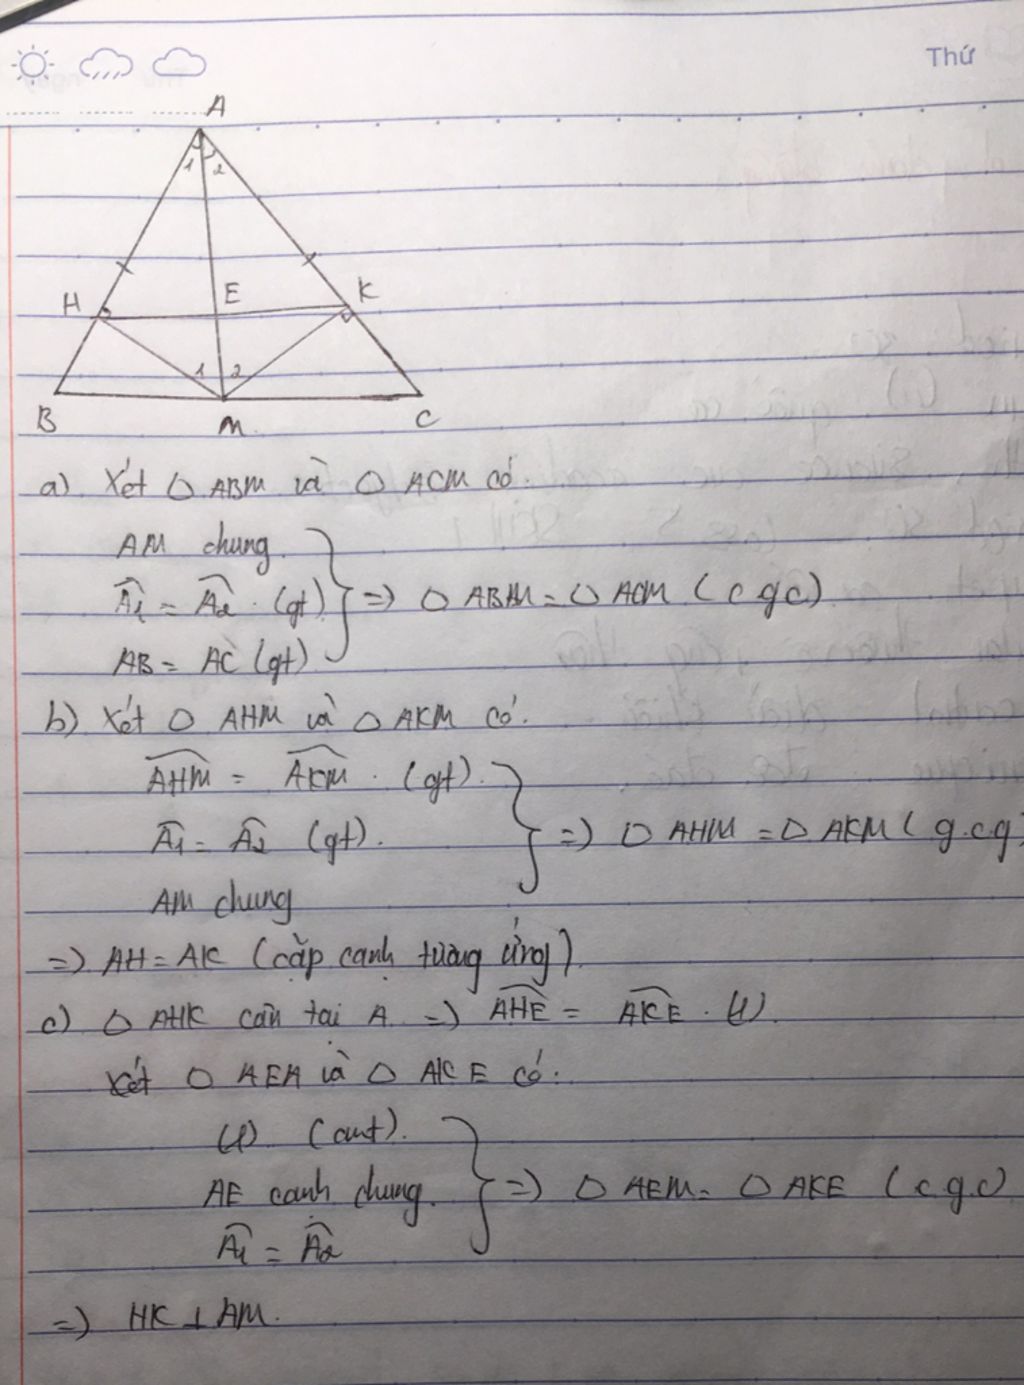 Thứ
A
1 2
H E K
1 2
B M C
a) Xét △ ABM và △ ACM có:
AM chung
Â1 = Â2 (gt) => △ ABM = △ ACM (c g c)
AB = AC (gt)
b) Xét △ AHM và △ AKM có:
AHM = AKM (gt)
Â1 = Â2 (gt) => △ AHM = △ AKM (g.c.g)
AM chung
=> AH = AK (cặp cạnh tương ứng)
c) △ AHK cân tại A => AHE = AKE (1)
Xét △ AEH và △ AKE có:
(1) (cmt)
AE cạnh chung => △ AEM = △ AKE (c g.c)
Â1 = Â2
=> HK ⊥ AM.